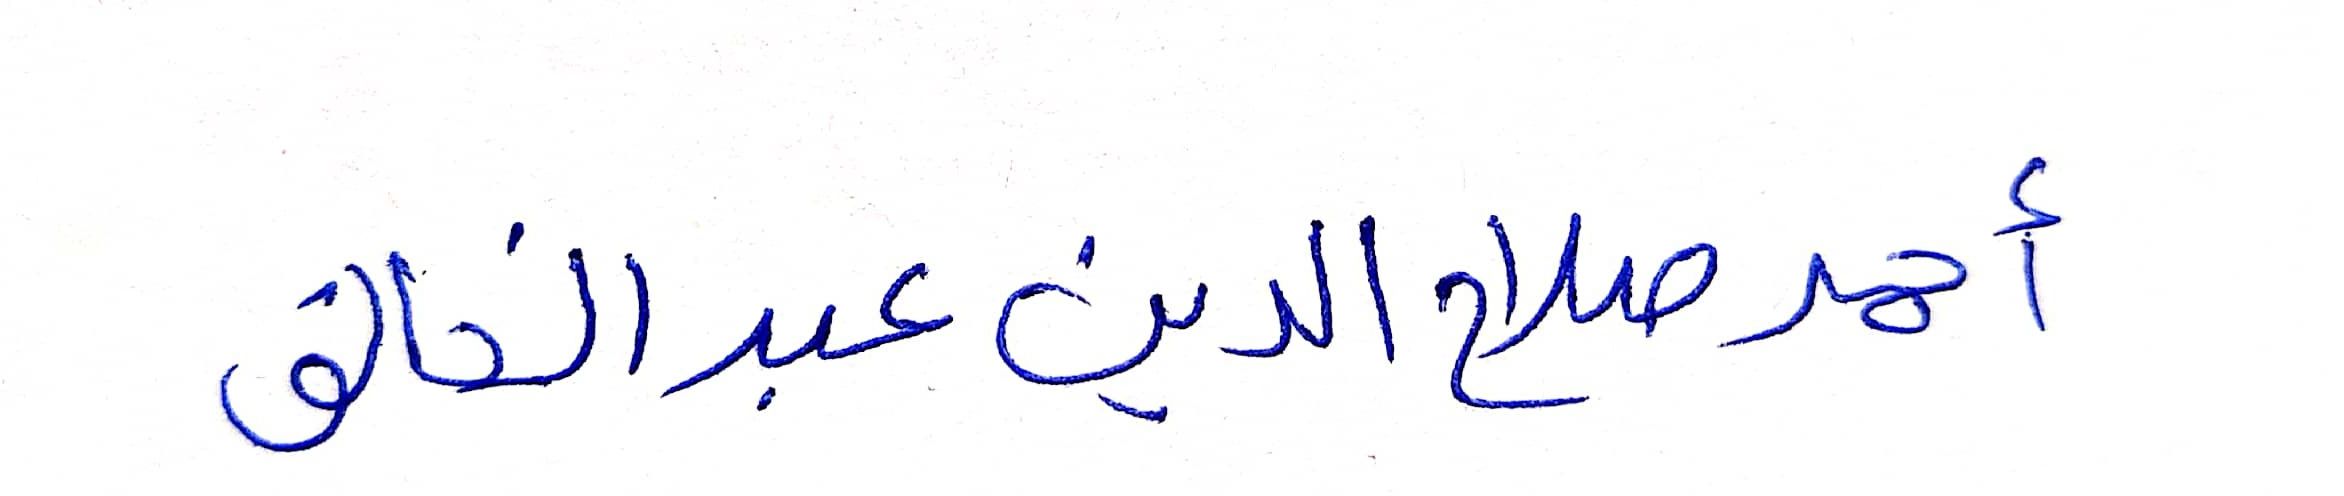 أحمد صلاح الدين عبد الخالق